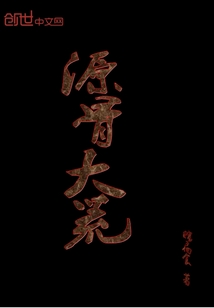 创世中文网
源骨大荒
著